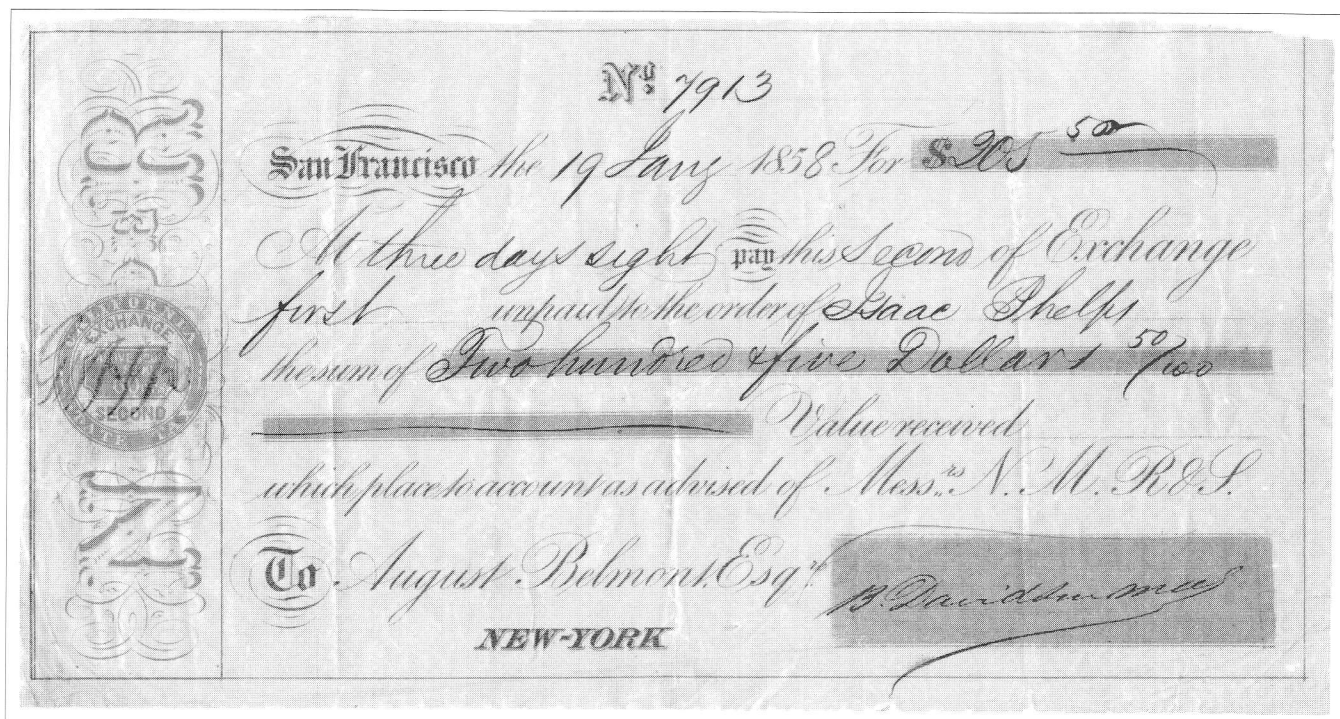 Nº 7913
San Francisco the 19 Jany 1858 For $205 50
At three days sight pay this Second of Exchange
first unpaid to the order of Isaac Phelps
the sum of Two hundred & five Dollars 50/100
Value received
which place to account as advised of Messrs. N. M. R & S.
To August Belmont, Esqr.
B. Davidson
NEW-YORK
EXCHANGE
SECOND